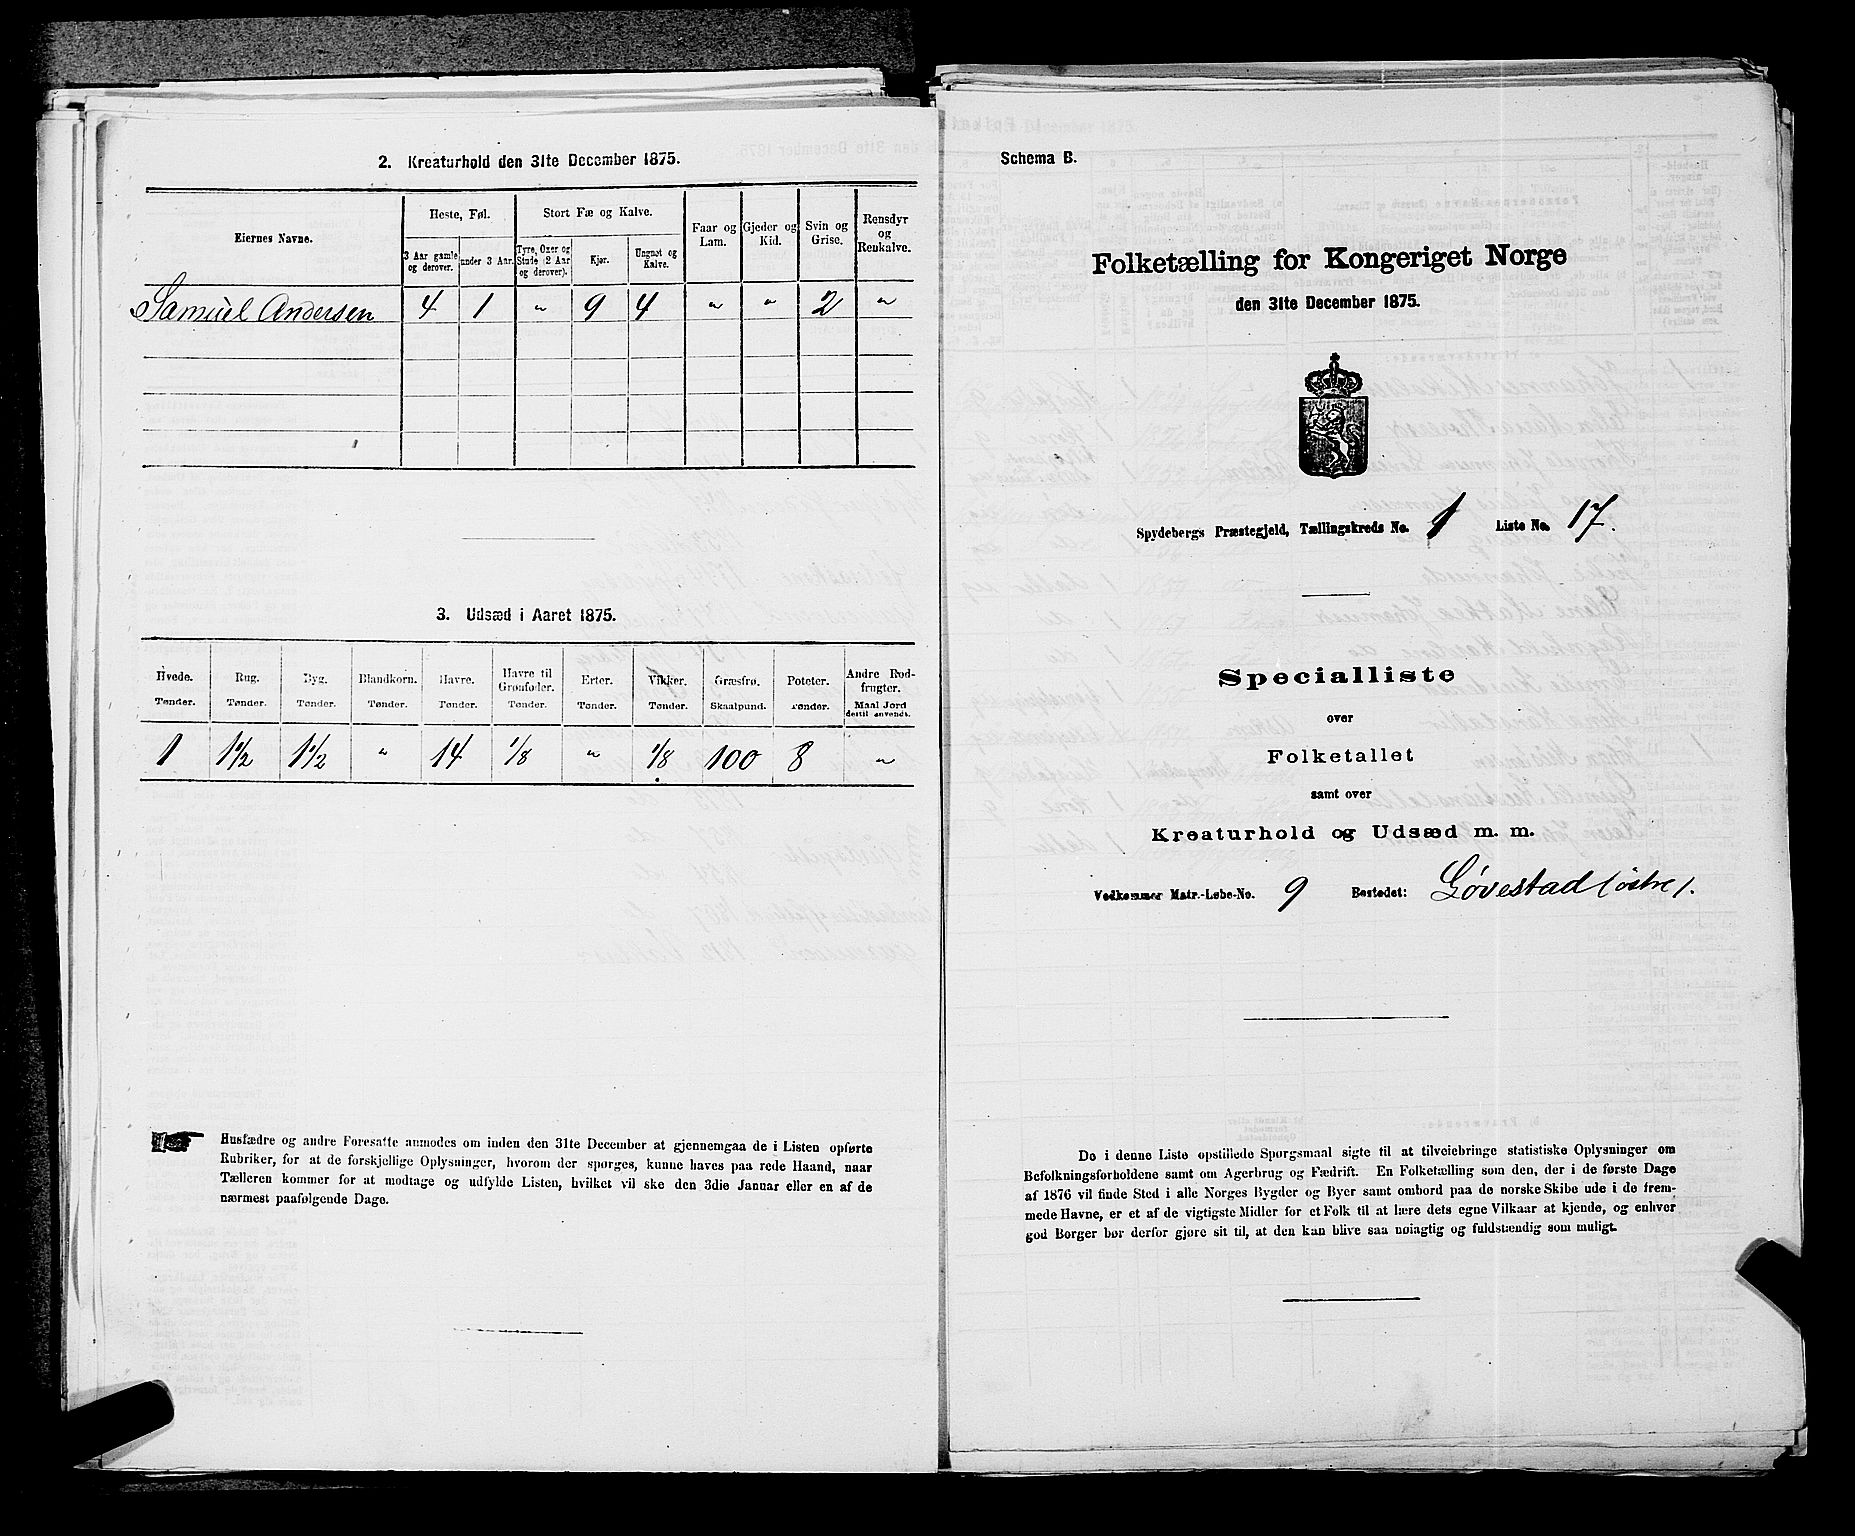 2. Kreaturhold den 31te December 1875.
Eiernes Navne.
Heste, Føl.
Stort Fæ og Kalve.
Faar og Lam.
Gjeder og Kid.
Svin og Grise.
Rensdyr og Renkalve.
3 Aar gamle og derover.
under 3 Aar.
Tyre, Oxer og Stude (2 Aar og derover).
Kjør.
Ungnøt og Kalve.
Samuel Andersen 4 1 " 9 4 " " 2 "
3. Udsæd i Aaret 1875.
Hvede. Rug. Byg. Blandkorn. Havre. Havre til Grønfoder. Erter. Vikker. Græsfrø. Poteter. Andre Rodfrugter.
Tønder. Tønder. Tønder. Tønder. Tønder. Tønder. Tønder. Tønder. Skaalpund. Tønder. Maal Jord dertil anvendt.
1 1 1/2 1 1/2 " 14 1/8 " 1/8 100 8 "
Husfædre og andre Foresatte anmodes om inden den 31te December at gjennemgaa de i Listen opførte
Rubriker, for at de forskjellige Oplysninger, hvorom der spørges, kunne haves paa rede Haand, naar
Tælleren kommer for at modtage og udfylde Listen, hvilket vil ske den 3die Januar eller en af de
nærmest paafølgende Dage.
Schema B.
Folketælling for Kongeriget Norge
den 31te December 1875.
Spydebergs Præstegjeld, Tællingskreds No. 1 Liste No. 17.
Specialliste
over
Folketallet
samt over
Kreaturhold og Udsæd m. m.
Vedkommer Matr.-Løbe-No. 9 Bostedet: Løvestad (østre).
De i denne Liste opstillede Spørgsmaal sigte til at tilveiebringe statistiske Oplysninger om
Befolkningsforholdene samt om Agerbrug og Fædrift. En Folketælling som den, der i de første Dage
af 1876 vil finde Sted i alle Norges Bygder og Byer samt ombord paa de norske Skibe ude i de frem-
mede Havne, er et af de vigtigste Midler for et Folk til at lære dets egne Vilkaar at kjende, og enhver
god Borger bør derfor gjøre sit til, at den kan blive saa nøiagtig og fuldstændig som muligt.